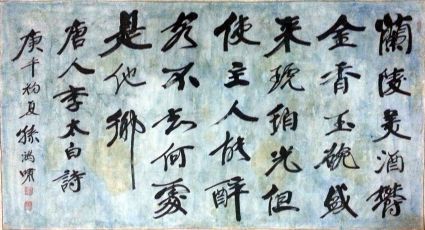 蘭陵美酒鬱
金香玉碗盛
來琥珀光但
使主人能醉
客不知何處
是他鄉
唐人李太白詩
庚午初夏